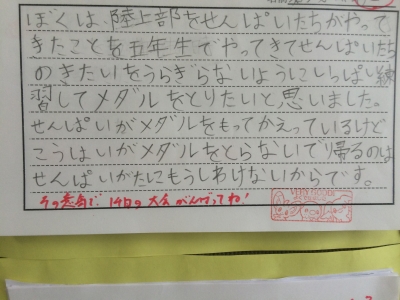 ぼくは、陸上部をせんぱいたちがやって
きたことを五年生でやってきてせんぱいたち
のきたいをうらぎらないようにいっぱい練
習してメダルをとりたいと思いました。
せんぱいがメダルをもってかえっているけど
こうはいがメダルをとらないで帰るのは
せんぱいがたにもうしわけないからです。
その意気で、14日の大会がんばってね!
VERY GOOD